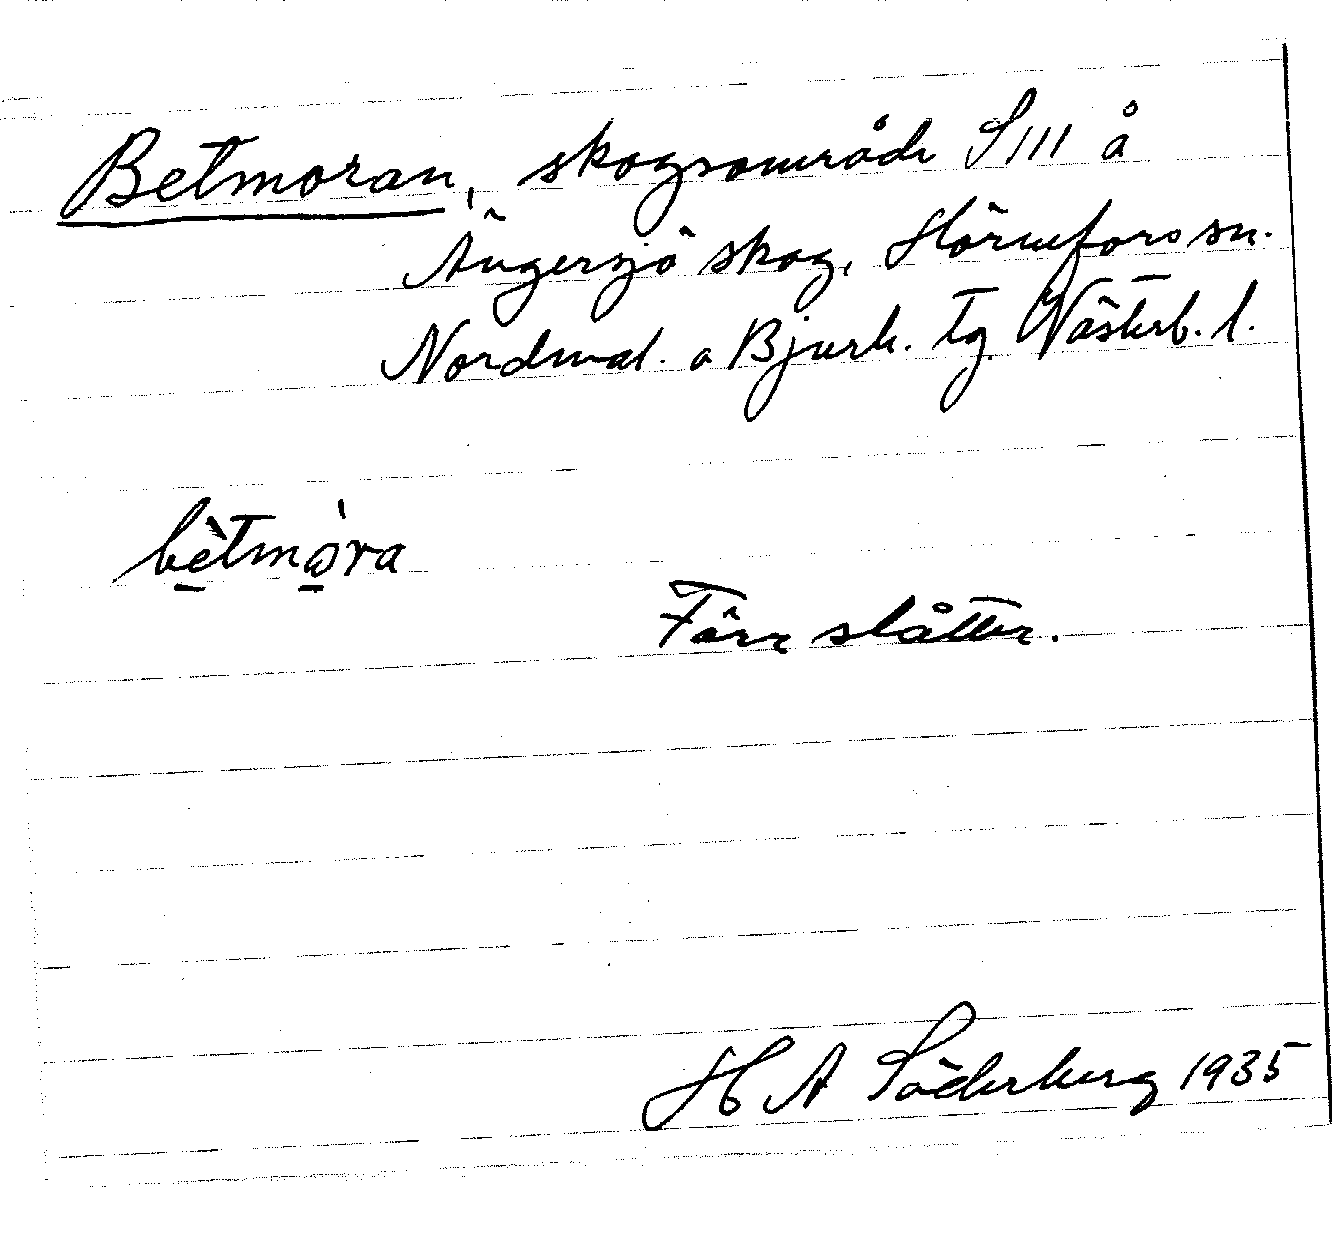 Betmoran, skogsområde SIII å
Ängersjö skog, Hörnefors sn.
Nordmal. o Bjurh. tg Västerb. l.
bètmòra
Förr slåtter.
H A Söderberg 1935